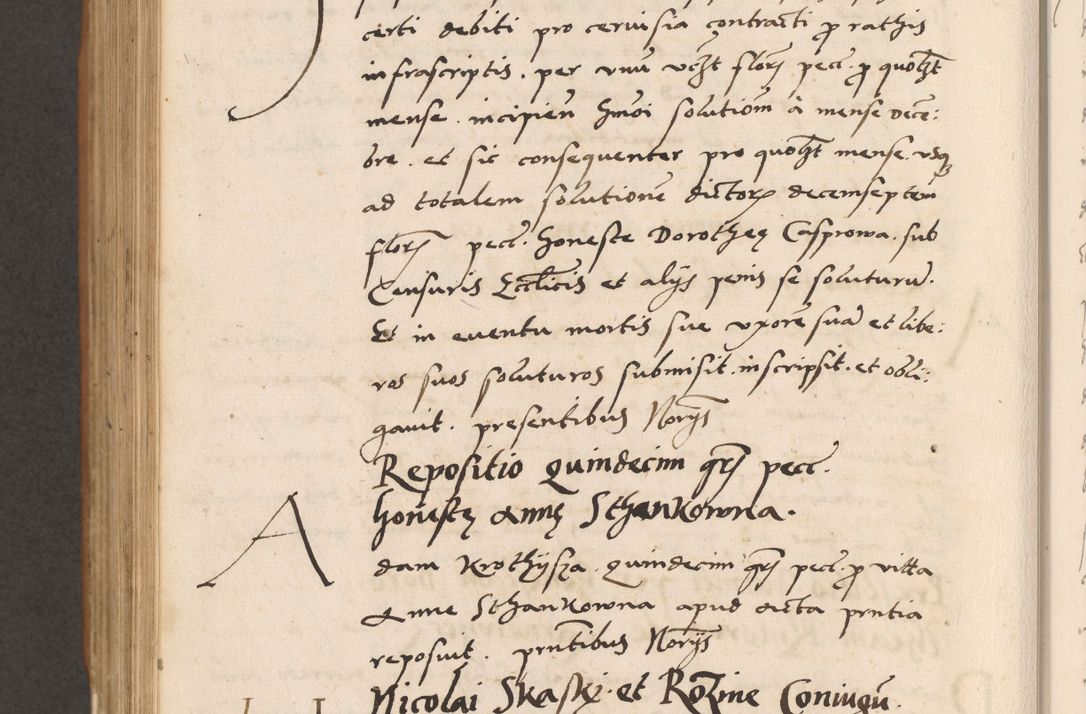 certi debiti pro ceruisia contracti p rathis
infrascriptis. per vnū florʒ pecc. p quolȝt
mense. incipień hmoi solutiom à mense Dece:
bre. et sic consequenter pro quolȝt mense. vsqʒ
ad totalem solutionē dictorʒ decemseptem
florʒ pecc. honeste Dorotheę Casprowa. sub
Censuris Ecclicis et alijs penis se soluturū.
Et in euentu mortis sue vxorē suā et libe:
ros suos soluturos submisit. inscripsit. et obli:
gauit. presentibus Norijs
Repositio quindecim grʒ pecc.
honestę Annę Sthankowna.
Adam Krothijsza. quindecim grʒ pecc. p vitta
Anne Sthankowna apud acta pntia
reposuit. pntibus Norijs
Nicolai Skaski. et Rozine Coniugū.